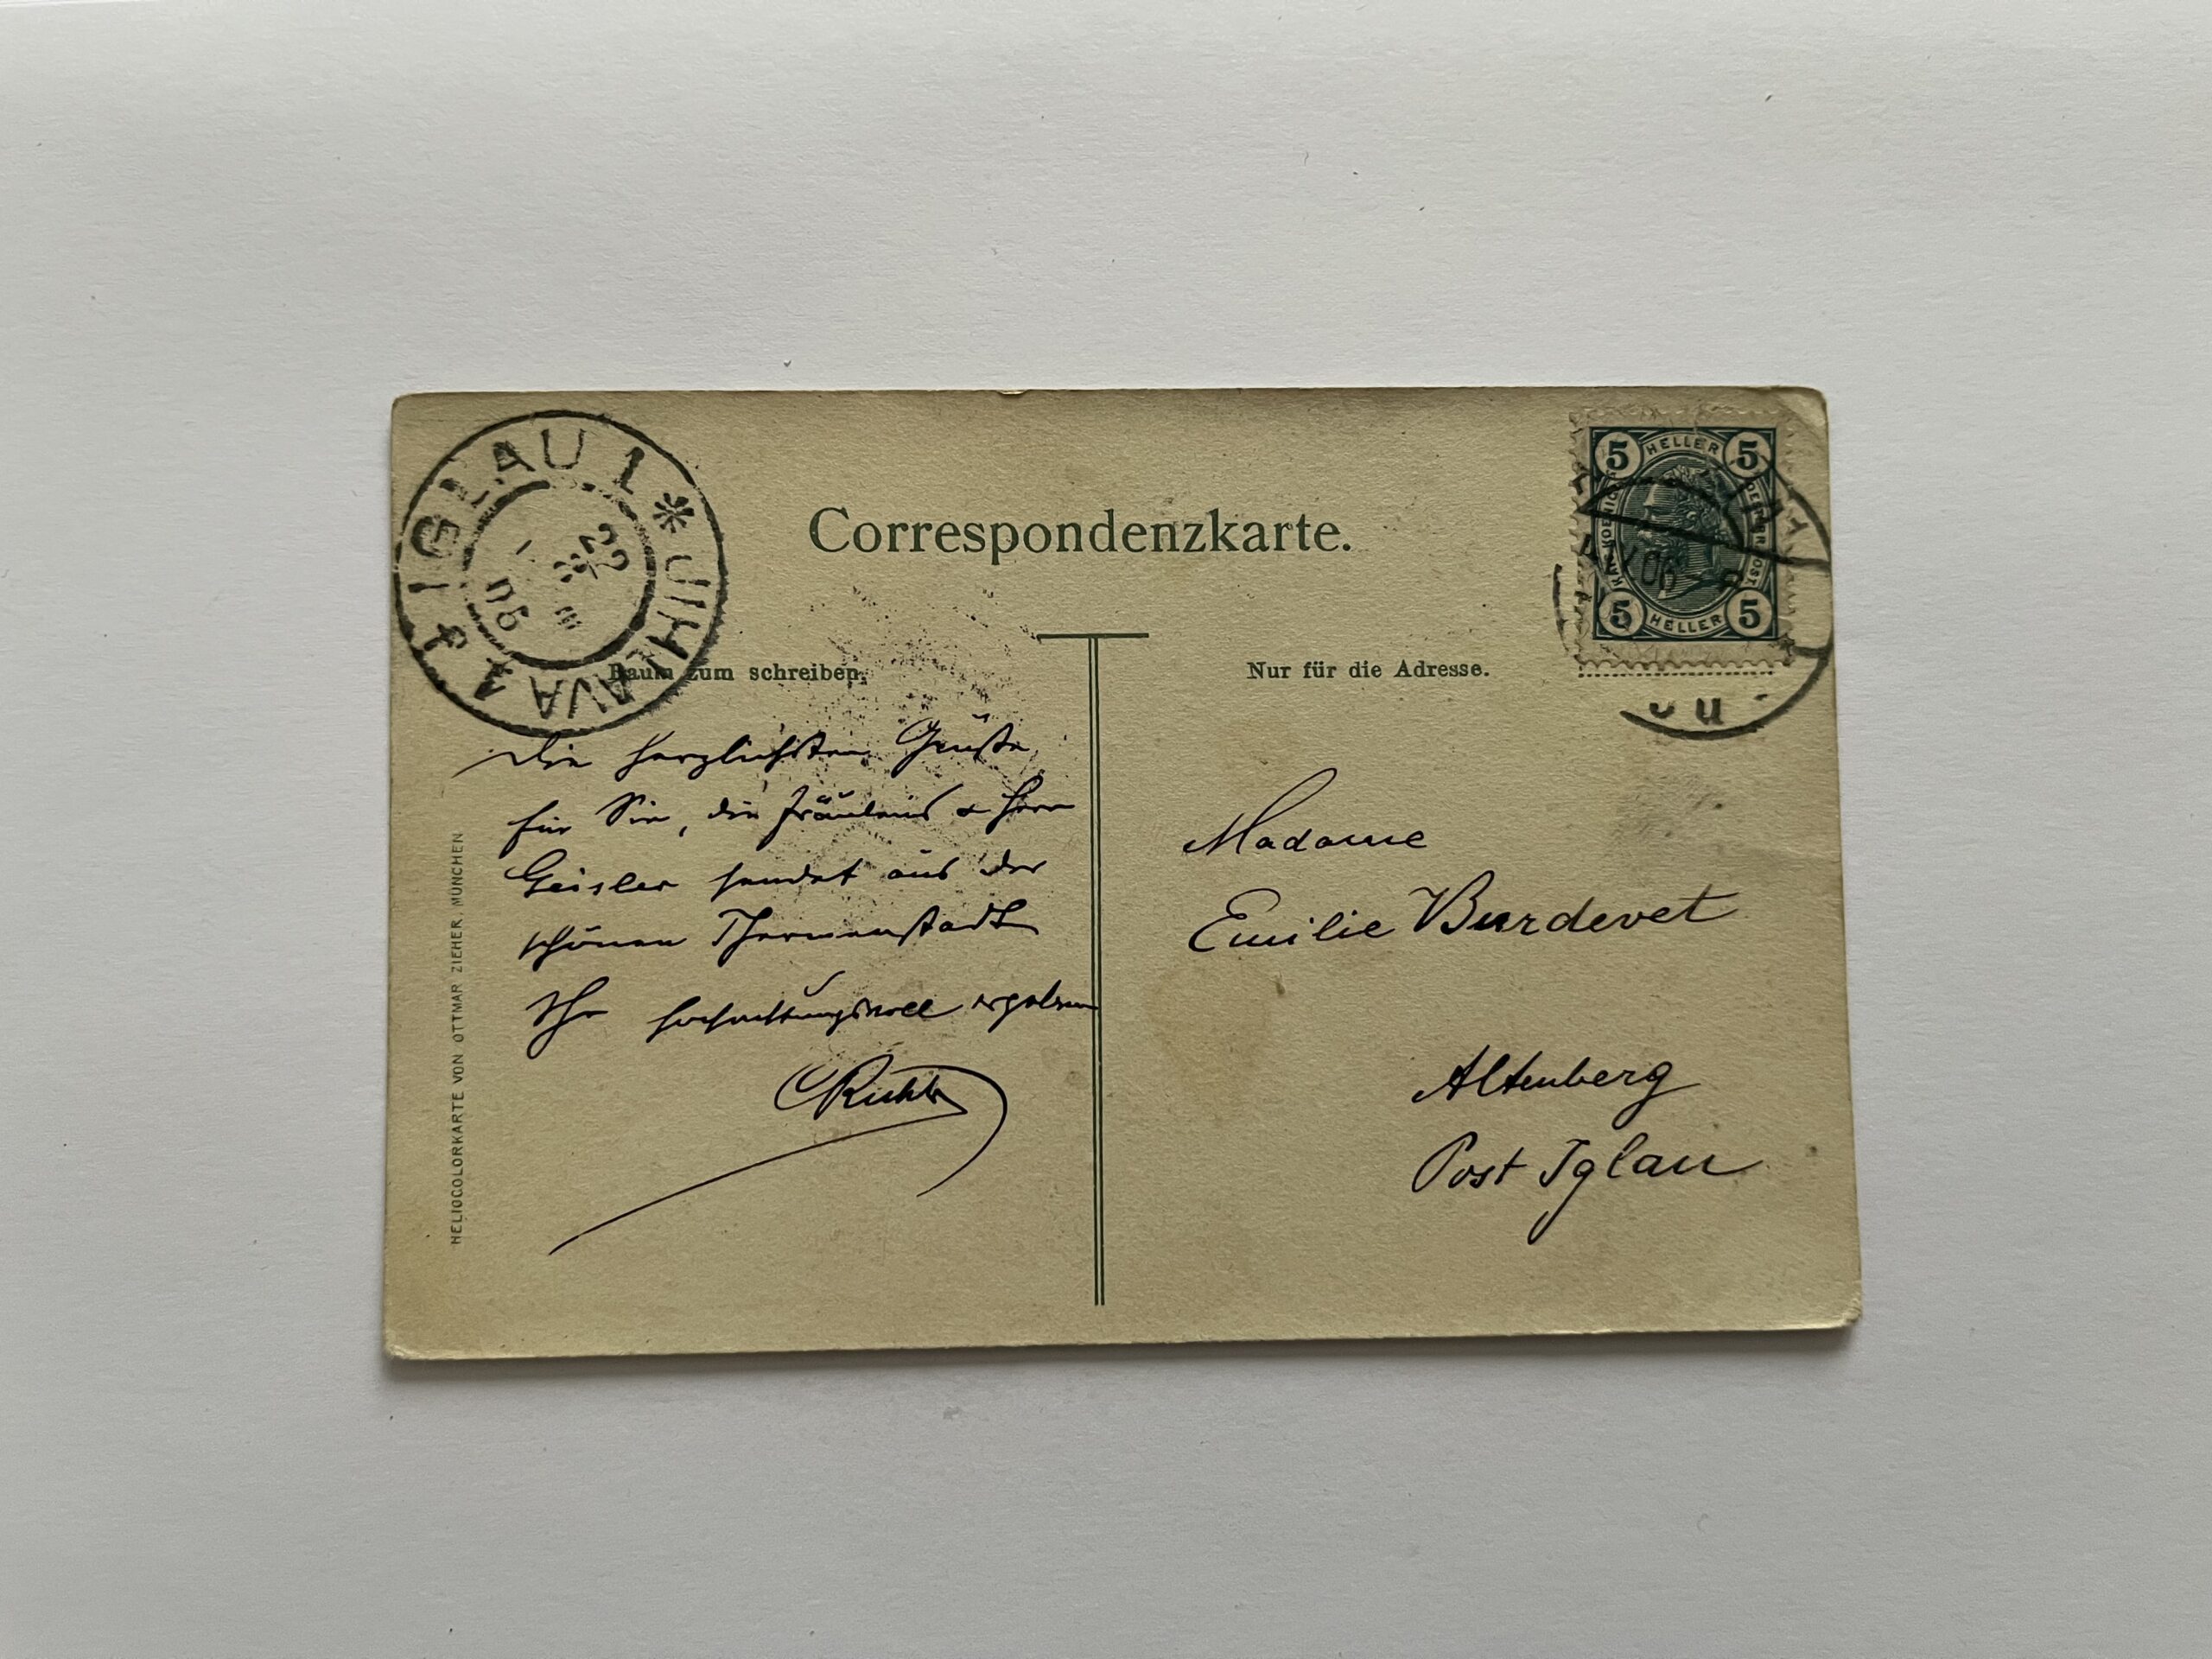 IGLAU 1 * JIHLAVA 1
22
06
Correspondenzkarte.
5 HELLER 5
5 HELLER 5
06
Raum zum schreiben.
Nur für die Adresse.
Die herzlichsten Grüße
für Sie, die Fräuleins & Herr
Geisler sendet aus der
schönen Thermenstadt
Ihr hochachtungsvoll ergebener
Madame
Emilie Burdevet
Altenberg
Post Iglau
HELIOCOLORKARTE VON OTTMAR ZIEHER, MÜNCHEN